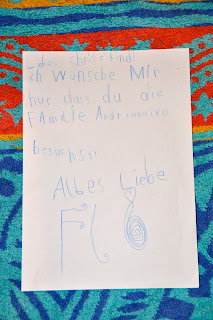 Liebes Christkind!
ich wünsche Mir
nur das du die
FAmilie Andriannaivo
besuchst!
Alles Liebe
Flo